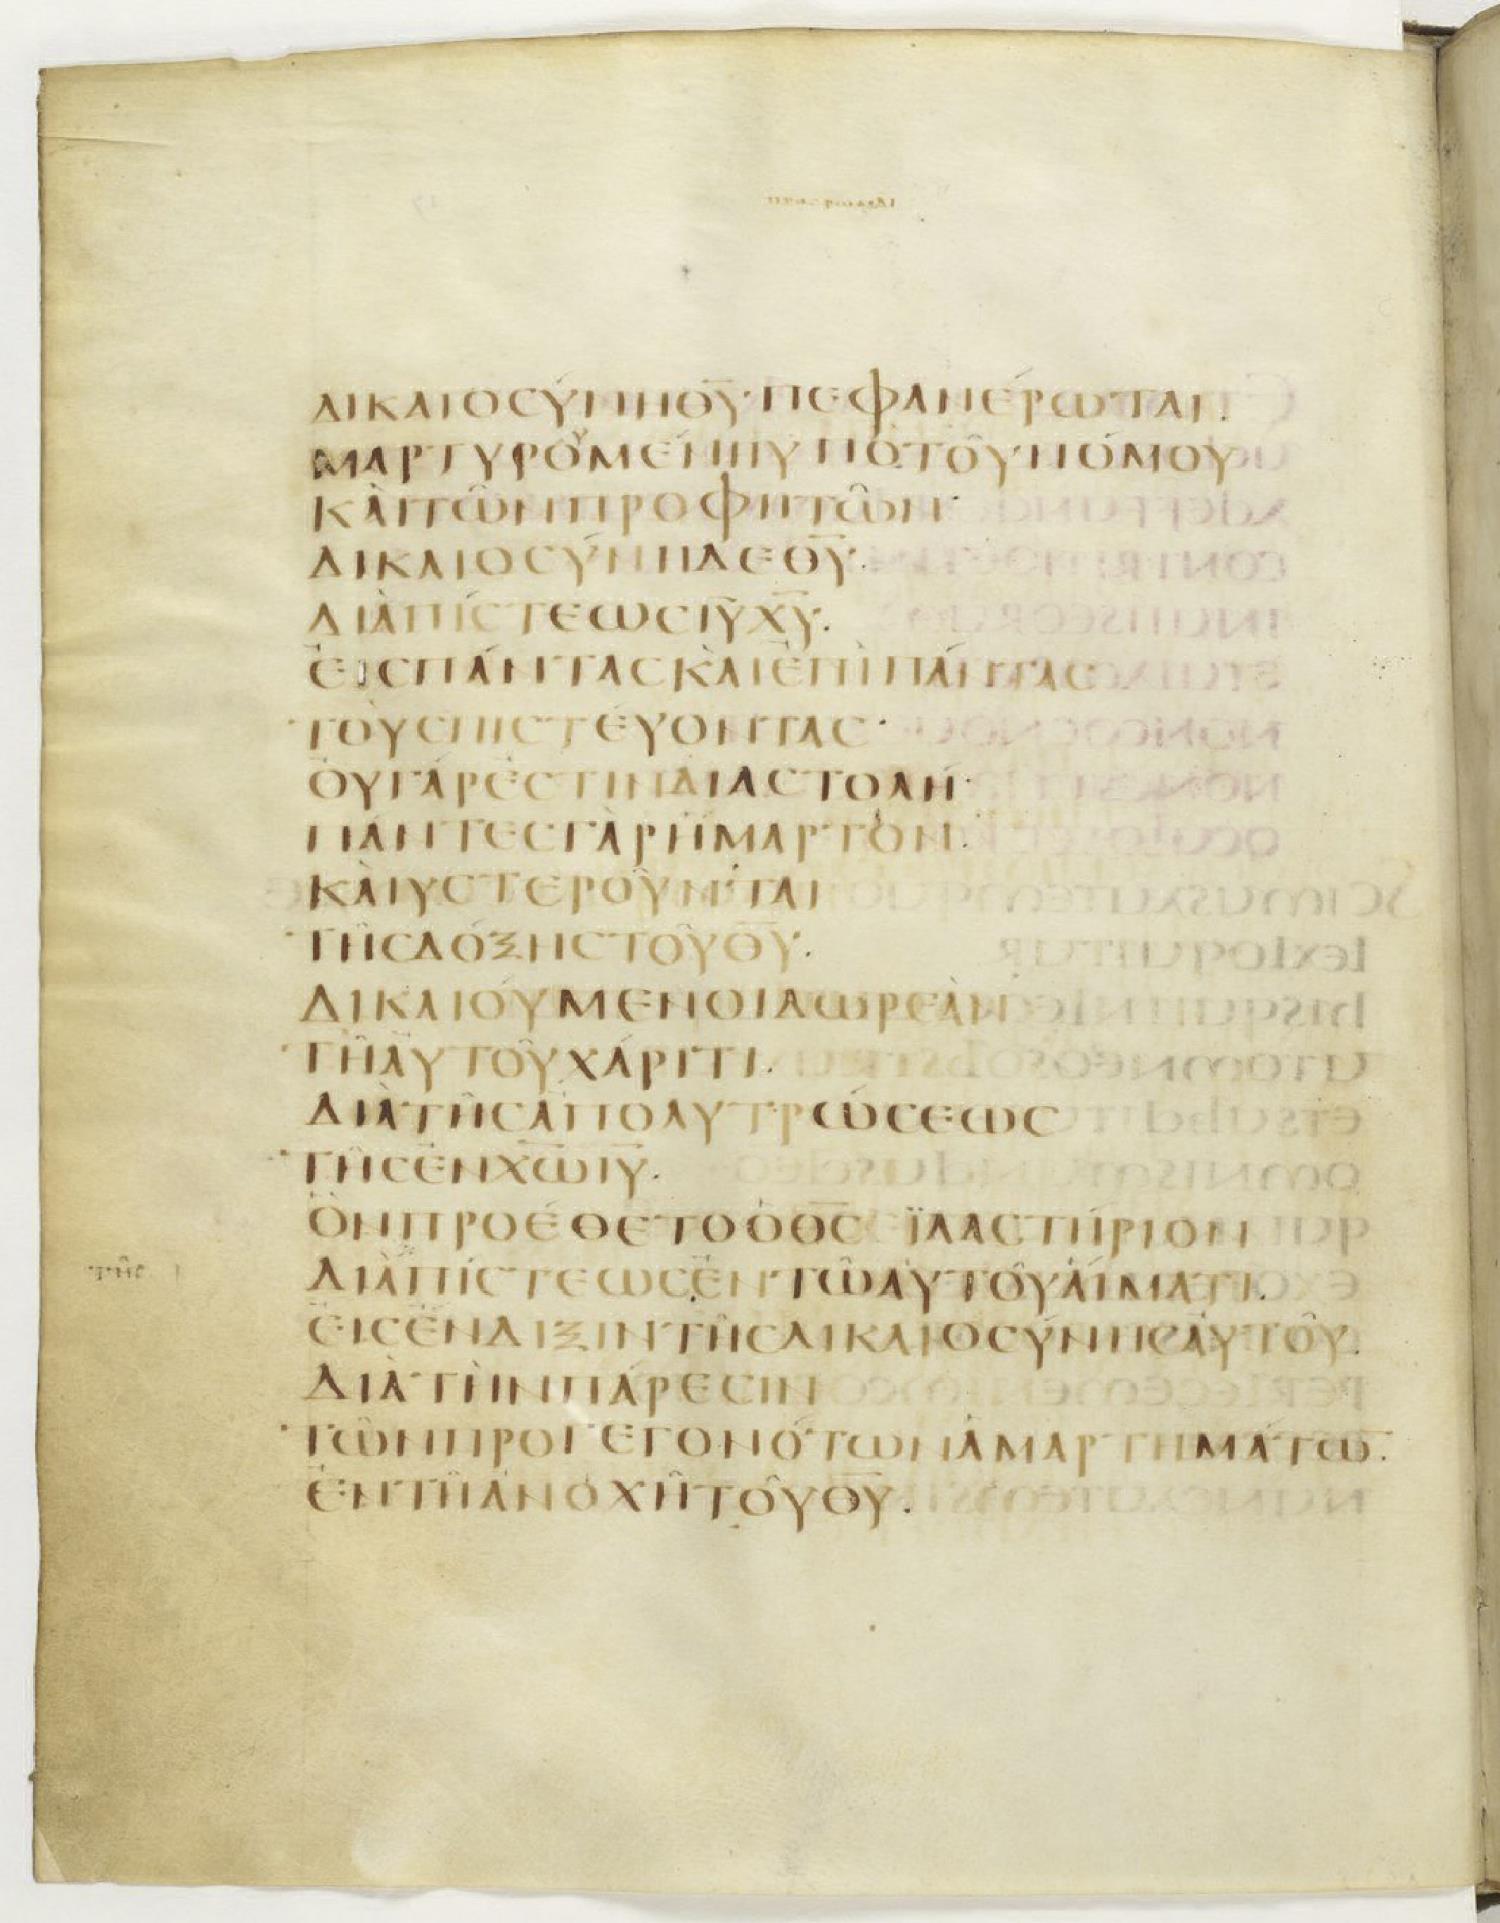 ΔΙΚΑΙΟΣΎΝΗΘ̅Υ̅·ΠΕΦΑΝΈΡΩΤΑΙ.
ΜΑΡΤΥΡΟΥΜΈΝΗΥΠΟΤΟΥ͂ΝΌΜΟΥ
ΚΑῚΤΩ͂ΝΠΡΟΦΗΤΩ͂Ν·
ΔΙΚΑΙΟΣΎΝΗΔΕΘ̅Υ̅·
ΔΙᾺΠΊΣΤΕΩΣΙ̅Υ̅Χ̅Υ̅.
ἘΙΣΠΆΝΤΑΣΚΑῚἘΠῚΠΆΝΤΑΣ
ΤΟῪΣΠΙΣΤΈΥΟΝΤΑΣ·
ὈΥΓΆΡἘΣΤΙΝΔΙΑΣΤΟΛΉ·
ΠΆΝΤΕΣΓᾺΡἭΜΑΡΤΟΝ.
ΚΑῚΥΣΤΕΡΟΥ͂ΝΤΑΙ
ΤΗ͂ΣΔΌΞΗΣΤΟΥ͂Θ̅Υ̅.
ΔΙΚΑΙΟΎΜΕΝΟΙΔΩΡΕᾺΝ
ΤΗ͂ΑΥΤΟΥ͂ΧΆΡΙΤΙ.
ΔΙᾺΤΗ͂ΣἈΠΟΛΥΤΡΏΣΕΩΣ
ΤΗ͂ΣἘΝΧ̅Ω̅Ι̅Υ̅.
ὋΝΠΡΟΈΘΕΤΟὉΘ̅Σ̅ ΪΛΑΣΤΉΡΙΟΝ
ΔΙᾺΠΊΣΤΕΩΣἘΝΤΩ͂ΑΥΤΟΥ͂ΑἽΜΑΤΙ.
ἘΙΣἜΝΔΙΞΙΝΤΗ͂ΣΔΙΚΑΙΟΣΎΝΗΣΑΥΤΟΥ͂.
ΔΙᾺΤῊΝΠΆΡΕΣΙΝ
ΤΩ͂ΝΠΡΟΓΕΓΟΝΌΤΩΝἉΜΑΡΤΗΜΆΤΩ̅.
ἘΝΤΗ͂ἈΝΟΧΗ͂ΤΟΥ͂Θ̅Υ̅.